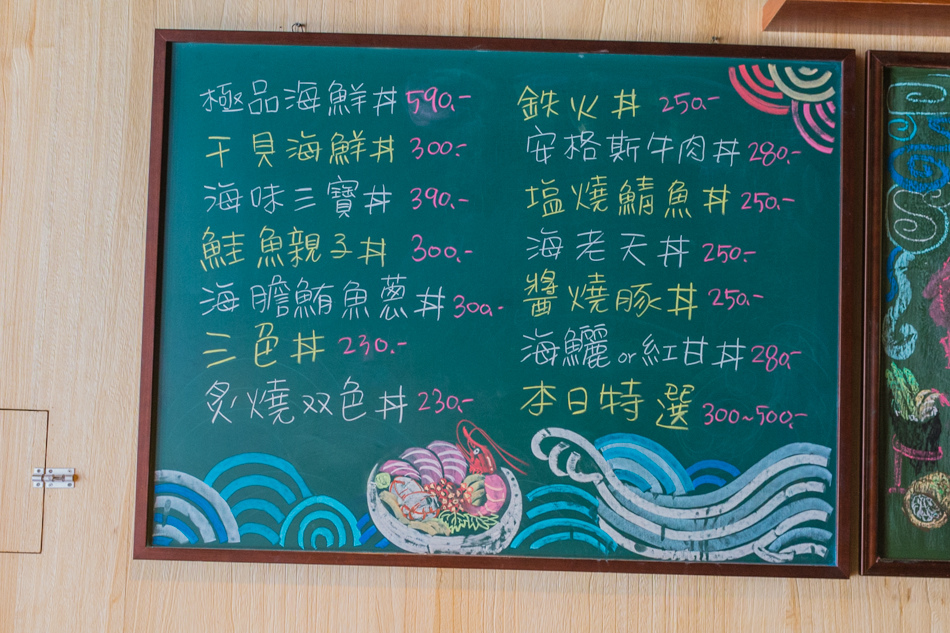 極品海鮮丼590.-
干貝海鮮丼 300.-
海味三寶丼 390.-
鮭魚親子丼 300.-
海膽鮪魚蔥丼300.-
三色丼 230.-
炙燒双色丼 230.-
鉄火丼 250.-
安格斯牛肉丼280.-
塩燒鯖魚丼 250.-
海老天丼 250.-
醬燒豚丼 250.-
海鱺or紅甘丼280.-
本日特選 300~500.-